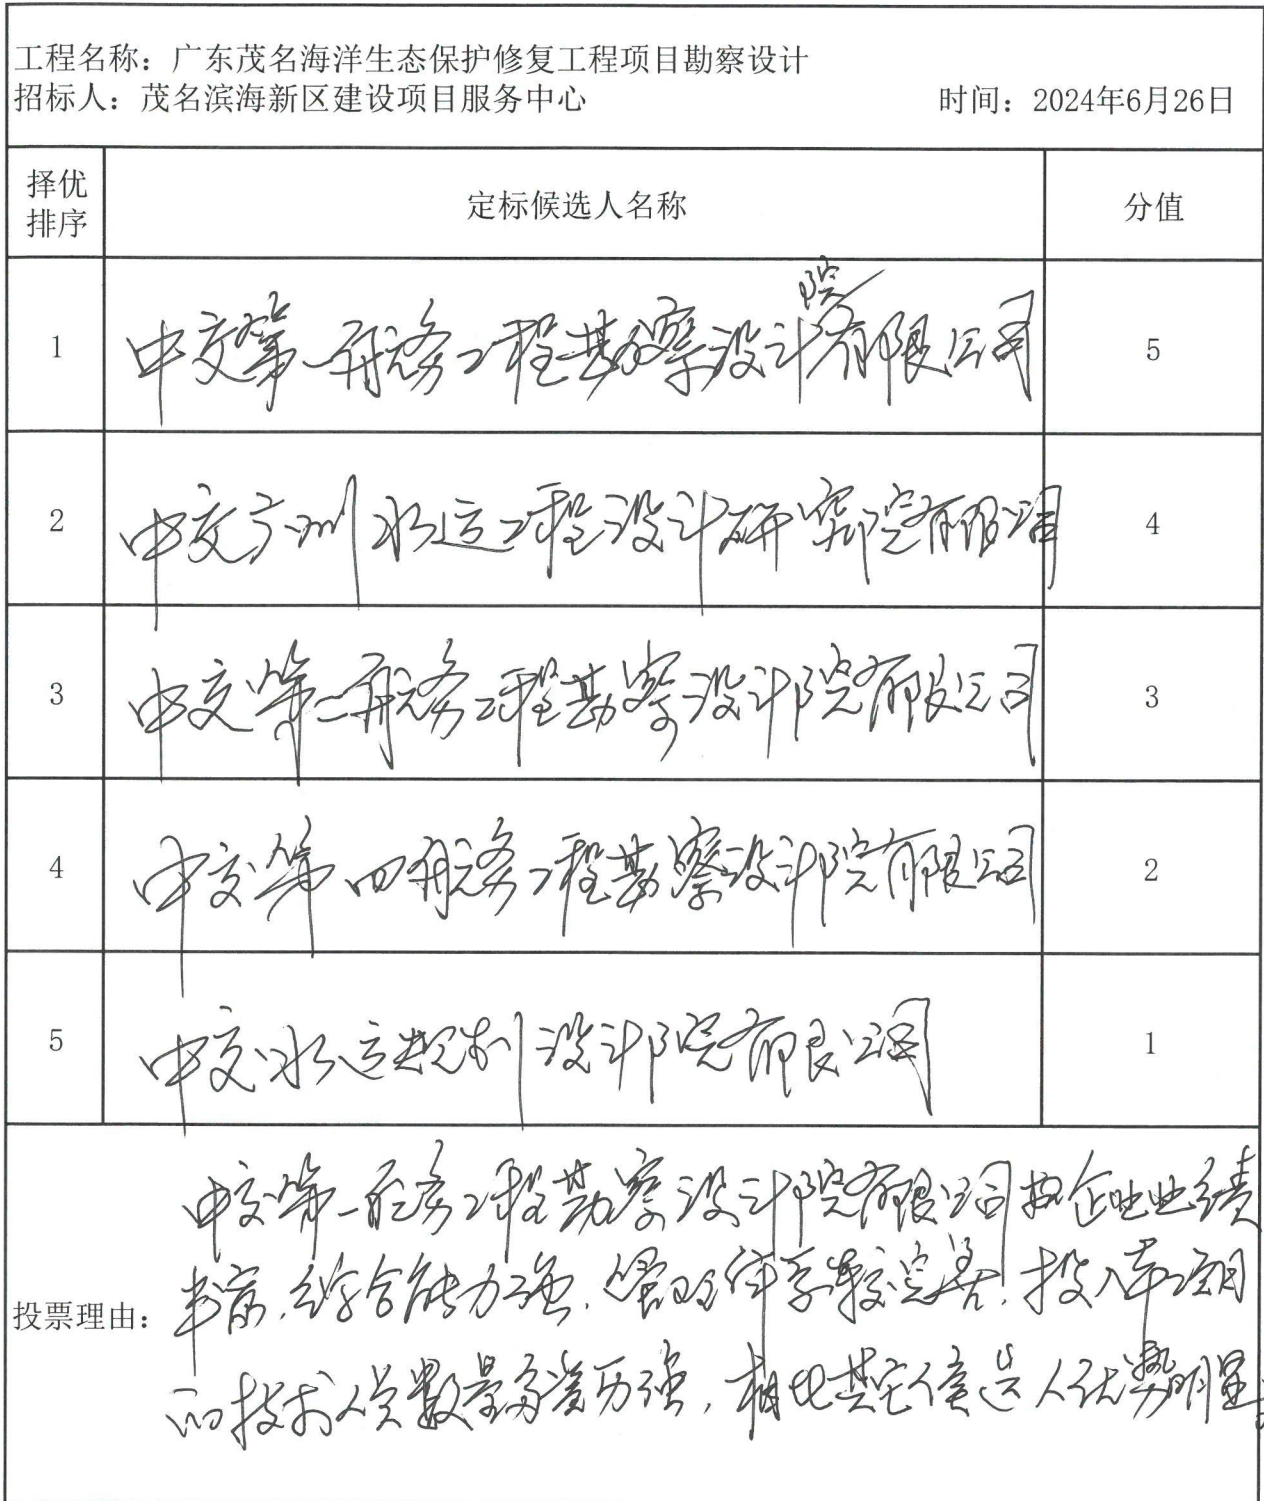 工程名称：广东茂名海洋生态保护修复工程项目勘察设计
招标人：茂名滨海新区建设项目服务中心 时间：2024年6月26日
择优排序 定标候选人名称 分值
1 中交第一航务工程勘察设计院有限公司 5
2 中交广州水运工程设计研究院有限公司 4
3 中交第二航务工程勘察设计院有限公司 3
4 中交第四航务工程勘察设计院有限公司 2
5 中交水运规划设计院有限公司 1
中交第一航务工程勘察设计院有限公司企业业绩
投票理由：丰富，综合能力强，管理体系较完善，投入本项目
的技术人员数量多资历强，相比其它候选人优势明显